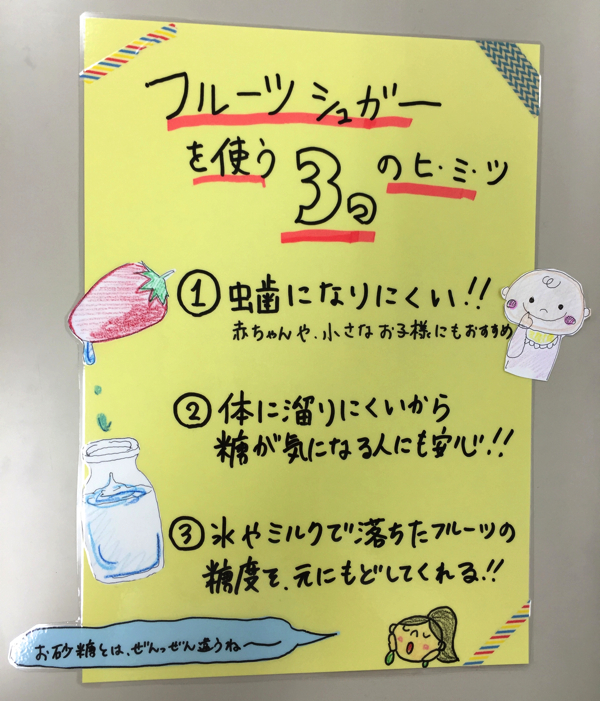 フルーツシュガー
を使う3つのヒ・ミ・ツ
① 虫歯になりにくい!!
赤ちゃんや、小さなお子様にもおすすめ
② 体に溜りにくいから
糖が気になる人にも安心!!
③ 氷やミルクで落ちたフルーツの
糖度を、元にもどしてくれる!!
お砂糖とは、ぜんっぜん違うね〜